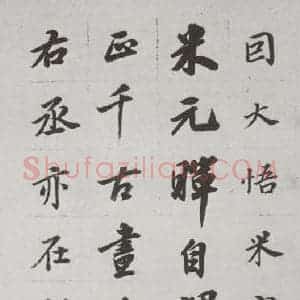 囙大悟米
米元暉自
正千古畫
右丞亦在
Shufaziliao.COM